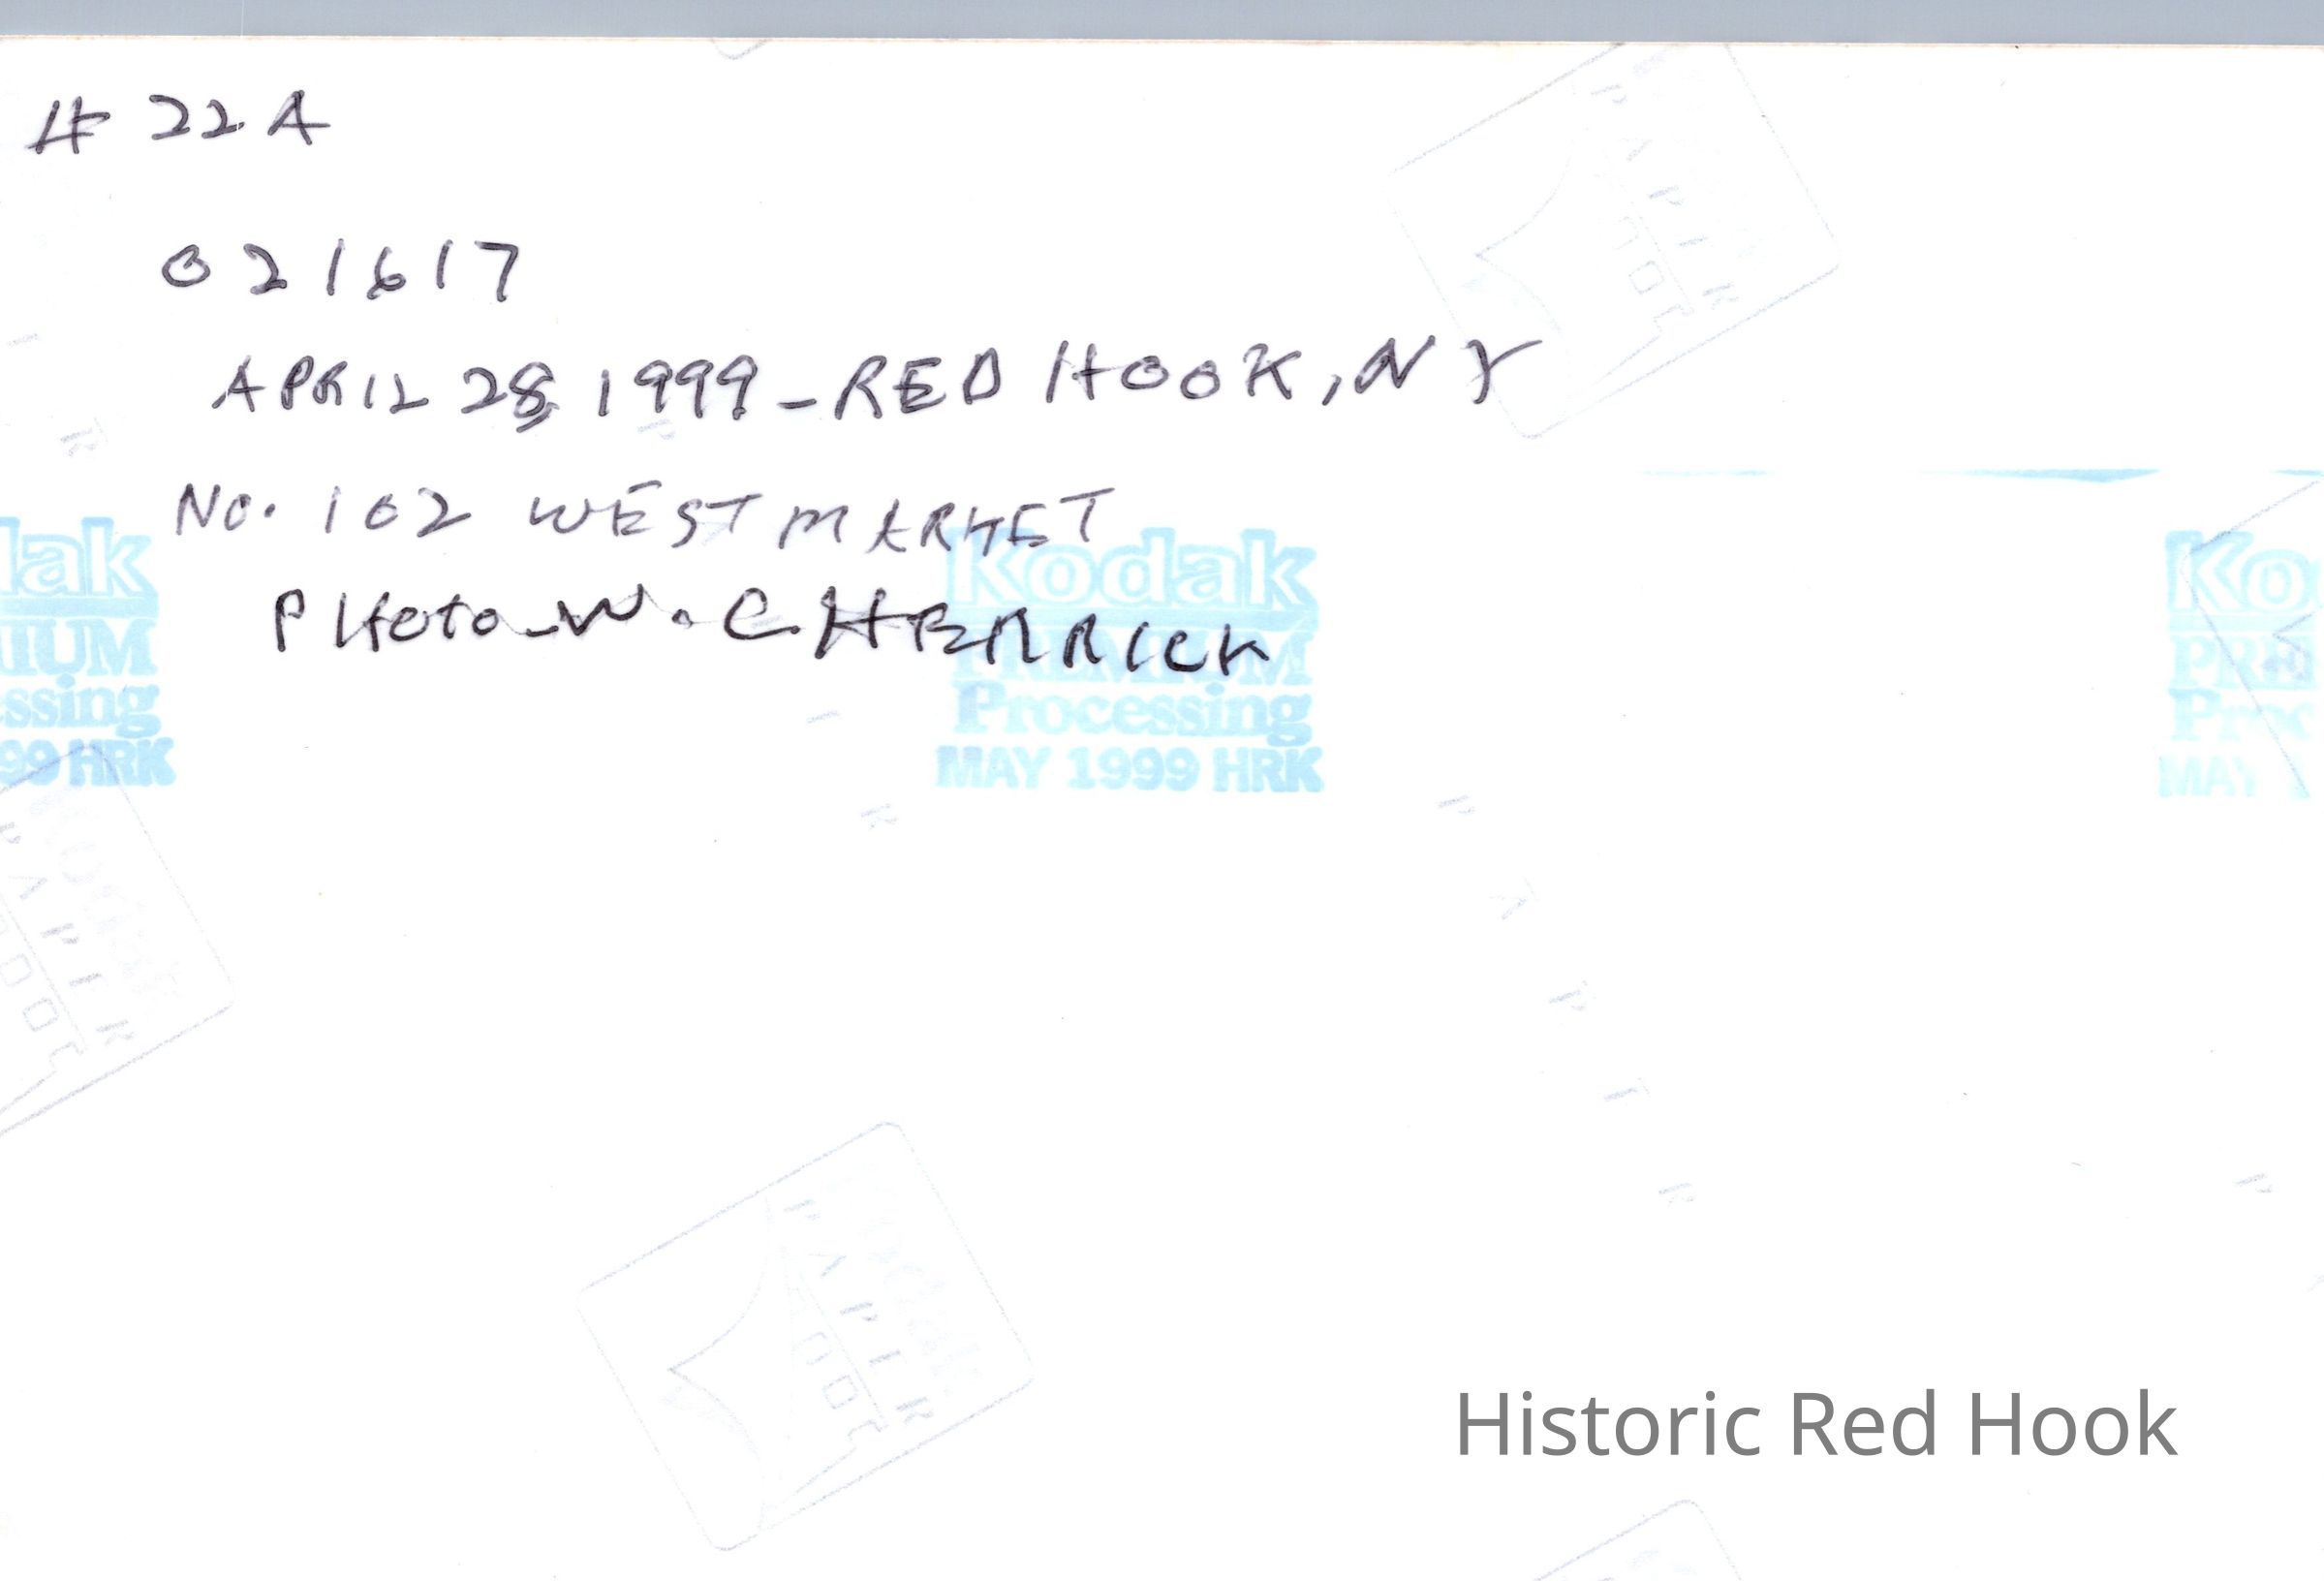 # 22A
021617
APRIL 28, 1999 - RED HOOK, NY
No. 102 WEST MARKET
PHOTO - W. C. HERRICK
lak
IUM
ssing
99 HRK
Kodak
PREMIUM
Processing
MAY 1999 HRK
Ko
PRE
Proc
MAY 1
Historic Red Hook